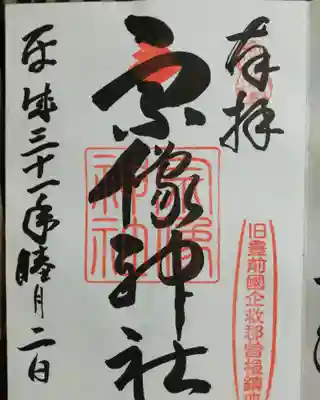 奉拝
宗像神社
宗像
神社
旧豊前國企救郡曽根鎮
平成三十一年睦月二日